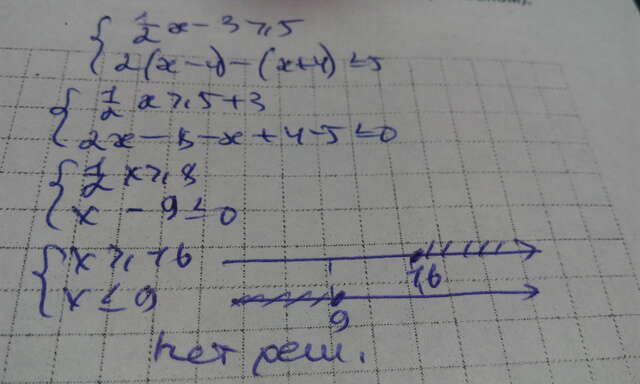 { 1/2 x - 3 ≥ 5
2(x-4) - (x+4) ≤ 5
{ 1/2 x ≥ 5+3
2x - 8 - x + 4 - 5 ≤ 0
{ 1/2 x ≥ 8
x - 9 ≤ 0
{ x ≥ 16
x ≤ 9
16
9
нет реш.